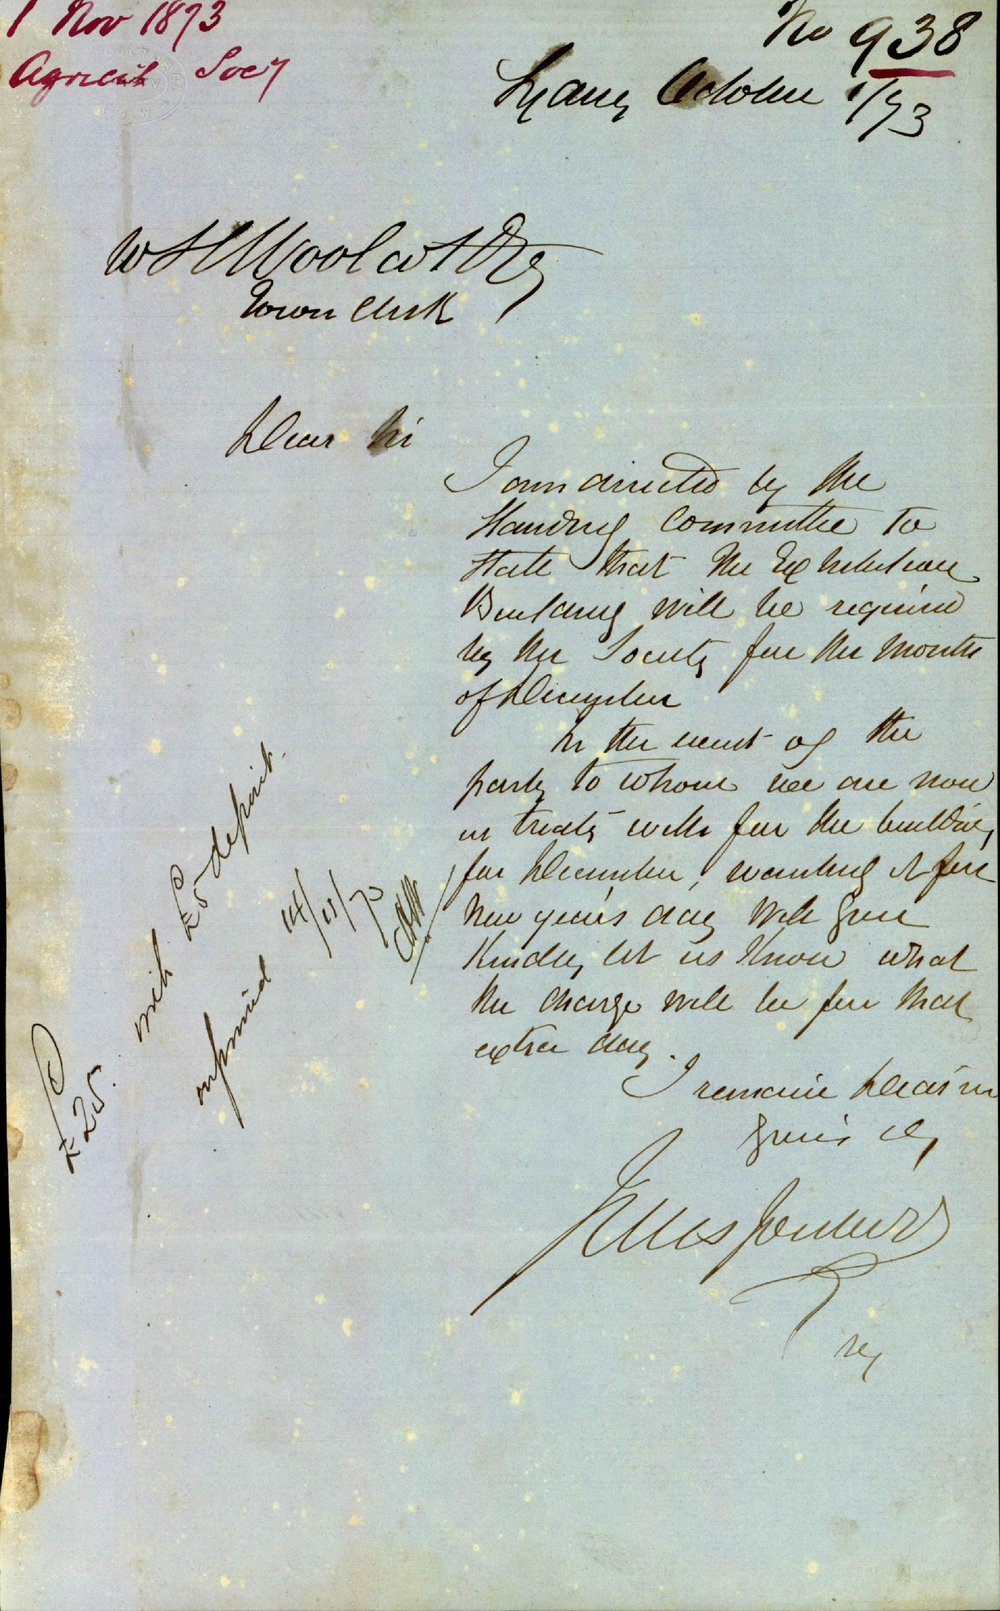 1 Nov 1873
Agricult Socy
No 938
Sydney October 1/73
W H Woolcott Esq
Town Clerk
Dear Sir
I am directed by the
Standing Committee to
state that the Exhibition
Building will be required
by the Society for the month
of December
In the event of the
party to whom we are now
in treaty with for the building
for December, wanting it for
New years day will you
kindly let us know what
the charge will be for that
extra day.
I remain Dear Sir
Yours
Jules Joubert
Sy
£25. with £5 deposit.
informed 14/11/73